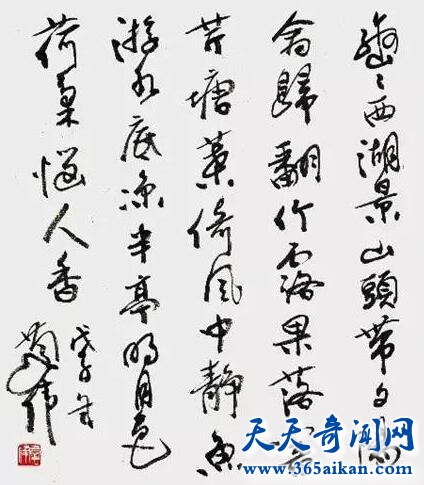 西湖景山頭帶夕陽
禽歸翻竹露果落響
芹塘葉倚風中靜魚
游水底涼半亭明月色
荷氣惱人香
戊子年
天天奇闻网
www.365aikan.com